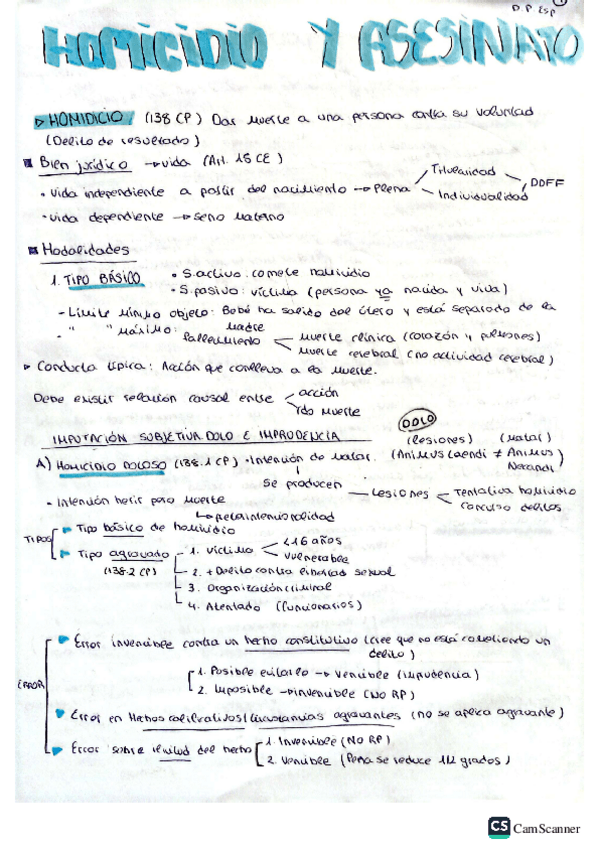 D.P Esp
HOMICIDIO Y ASESINATO
▷ HOMIDICIO / (138 CP) Dar muerte a una persona contra su voluntad
(Delito de resultado)
Bien jurídico → vida (Art. 15 CE)
• Vida independiente a partir del nacimiento → Plena Titularidad Individualidad DDFF
• Vida dependiente → seno materno
Modalidades
1. TIPO BÁSICO • S.activo: comete homicidio
• S.pasivo: víctima (persona ya nacida y viva)
- Límite mínimo objeto: Bebé ha salido del útero y está separado de la madre
- " " máximo: Fallecimiento muerte clínica (corazón y pulmones)
muerte cerebral (no actividad cerebral)
▷ Conducta típica: Acción que conlleva a la muerte.
Debe existir relación causal entre acción
rdo muerte
IMPUTACIÓN SUBJETIVA DOLO E IMPRUDENCIA
DOLO
(lesiones) (Matar)
A) HOMICIDIO DOLOSO (138.1 CP) • Intención de matar. (Animus Laendi ≠ Animus Necandi)
Se producen → Lesiones Tentativa homicidio
Concurso delitos
- Intención herir pero muerte
↳ preterintencionalidad
TIPOS
Tipo básico de homicidio
Tipo agravado (138.2 CP) 1. Víctima <16 años
vulnerable
2. + Delito contra libertad sexual
3. Organización criminal
4. Atentado (funcionarios)
ERROR
Error invencible contra un hecho constitutivo (cree que no está cometiendo un delito)
1. Posible evitarlo → vencible (imprudencia)
2. Imposible → invencible (NO RP)
Error en Hechos calificativos/circunstancias agravantes (no se aplica agravante)
Error sobre ilicitud del hecho 1. Invencible (NO RP)
2. Vencible (Pena se reduce 1/2 grados)
CS CamScanner